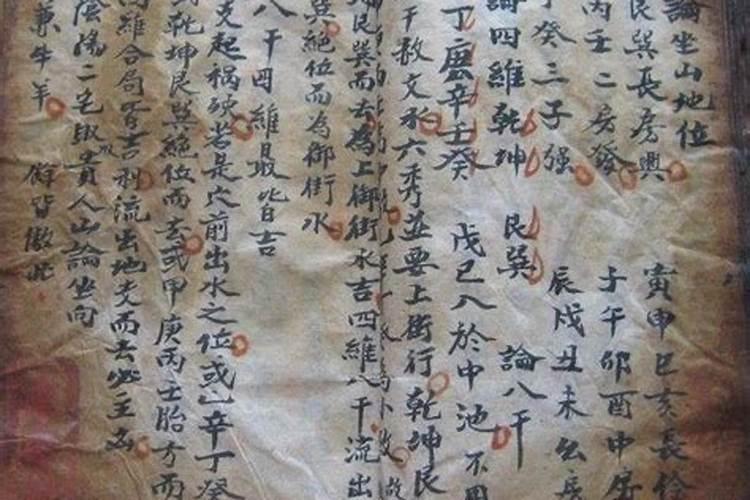 論坐山地位 寅申巳亥長位
艮巽長房興 子午卯酉中房
丙壬二房發 辰戌丑未么房
丁癸三子強
論四維乾坤 艮巽 論八干
丁庚辛壬癸 戊己入於中池不用
干敘文水六秀並要上街行乾坤艮
艮巽而去為上御街水吉四維八干流出
巽絕位而為御街水
八干四維最皆吉
支起禍殃若是穴前出水之位或乙辛丁癸
乾坤艮巽絕位而去或甲庚丙壬胎方而
四維合局皆吉利流出地支而去必主凶
陰陽二宅 貴人山論坐向
兼牛羊 皆倣此